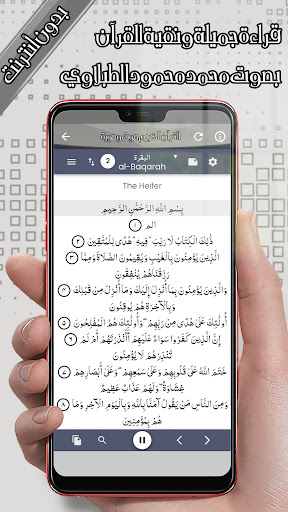 بدون انترنت
قراءة جميلة ونقية القرآن
بصوت محمد محمود الطبلاوي
القرآن الكريم
2
البقرة
al-Baqarah
The Heifer
بِسْمِ اللَّهِ الرَّحْمَٰنِ الرَّحِيمِ
الم ١
ذَٰلِكَ الْكِتَابُ لَا رَيْبَ ۛ فِيهِ ۛ هُدًى لِّلْمُتَّقِينَ ٢
الَّذِينَ يُؤْمِنُونَ بِالْغَيْبِ وَيُقِيمُونَ الصَّلَاةَ وَمِمَّا ٣
رَزَقْنَاهُمْ يُنفِقُونَ
وَالَّذِينَ يُؤْمِنُونَ بِمَا أُنزِلَ إِلَيْكَ وَمَا أُنزِلَ مِن قَبْلِكَ ٤
وَبِالْآخِرَةِ هُمْ يُوقِنُونَ
أُولَٰئِكَ عَلَىٰ هُدًى مِّن رَّبِّهِمْ ۖ وَأُولَٰئِكَ هُمُ الْمُفْلِحُونَ ٥
إِنَّ الَّذِينَ كَفَرُوا سَوَاءٌ عَلَيْهِمْ أَأَنذَرْتَهُمْ أَمْ لَمْ ٦
تُنذِرْهُمْ لَا يُؤْمِنُونَ
خَتَمَ اللَّهُ عَلَىٰ قُلُوبِهِمْ وَعَلَىٰ سَمْعِهِمْ ۖ وَعَلَىٰ أَبْصَارِهِمْ ٧
غِشَاوَةٌ ۖ وَلَهُمْ عَذَابٌ عَظِيمٌ
وَمِنَ النَّاسِ مَن يَقُولُ آمَنَّا بِاللَّهِ وَبِالْيَوْمِ الْآخِرِ وَمَا ٨
هُم بِمُؤْمِنِينَ